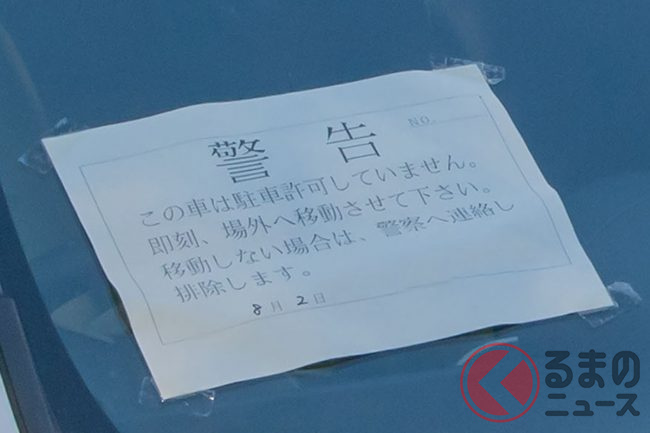 NO.
警 告
この車は駐車許可していません。
即刻、場外へ移動させて下さい。
移動しない場合は、警察へ連絡し
排除します。
8月2日
くるまの
ニュース